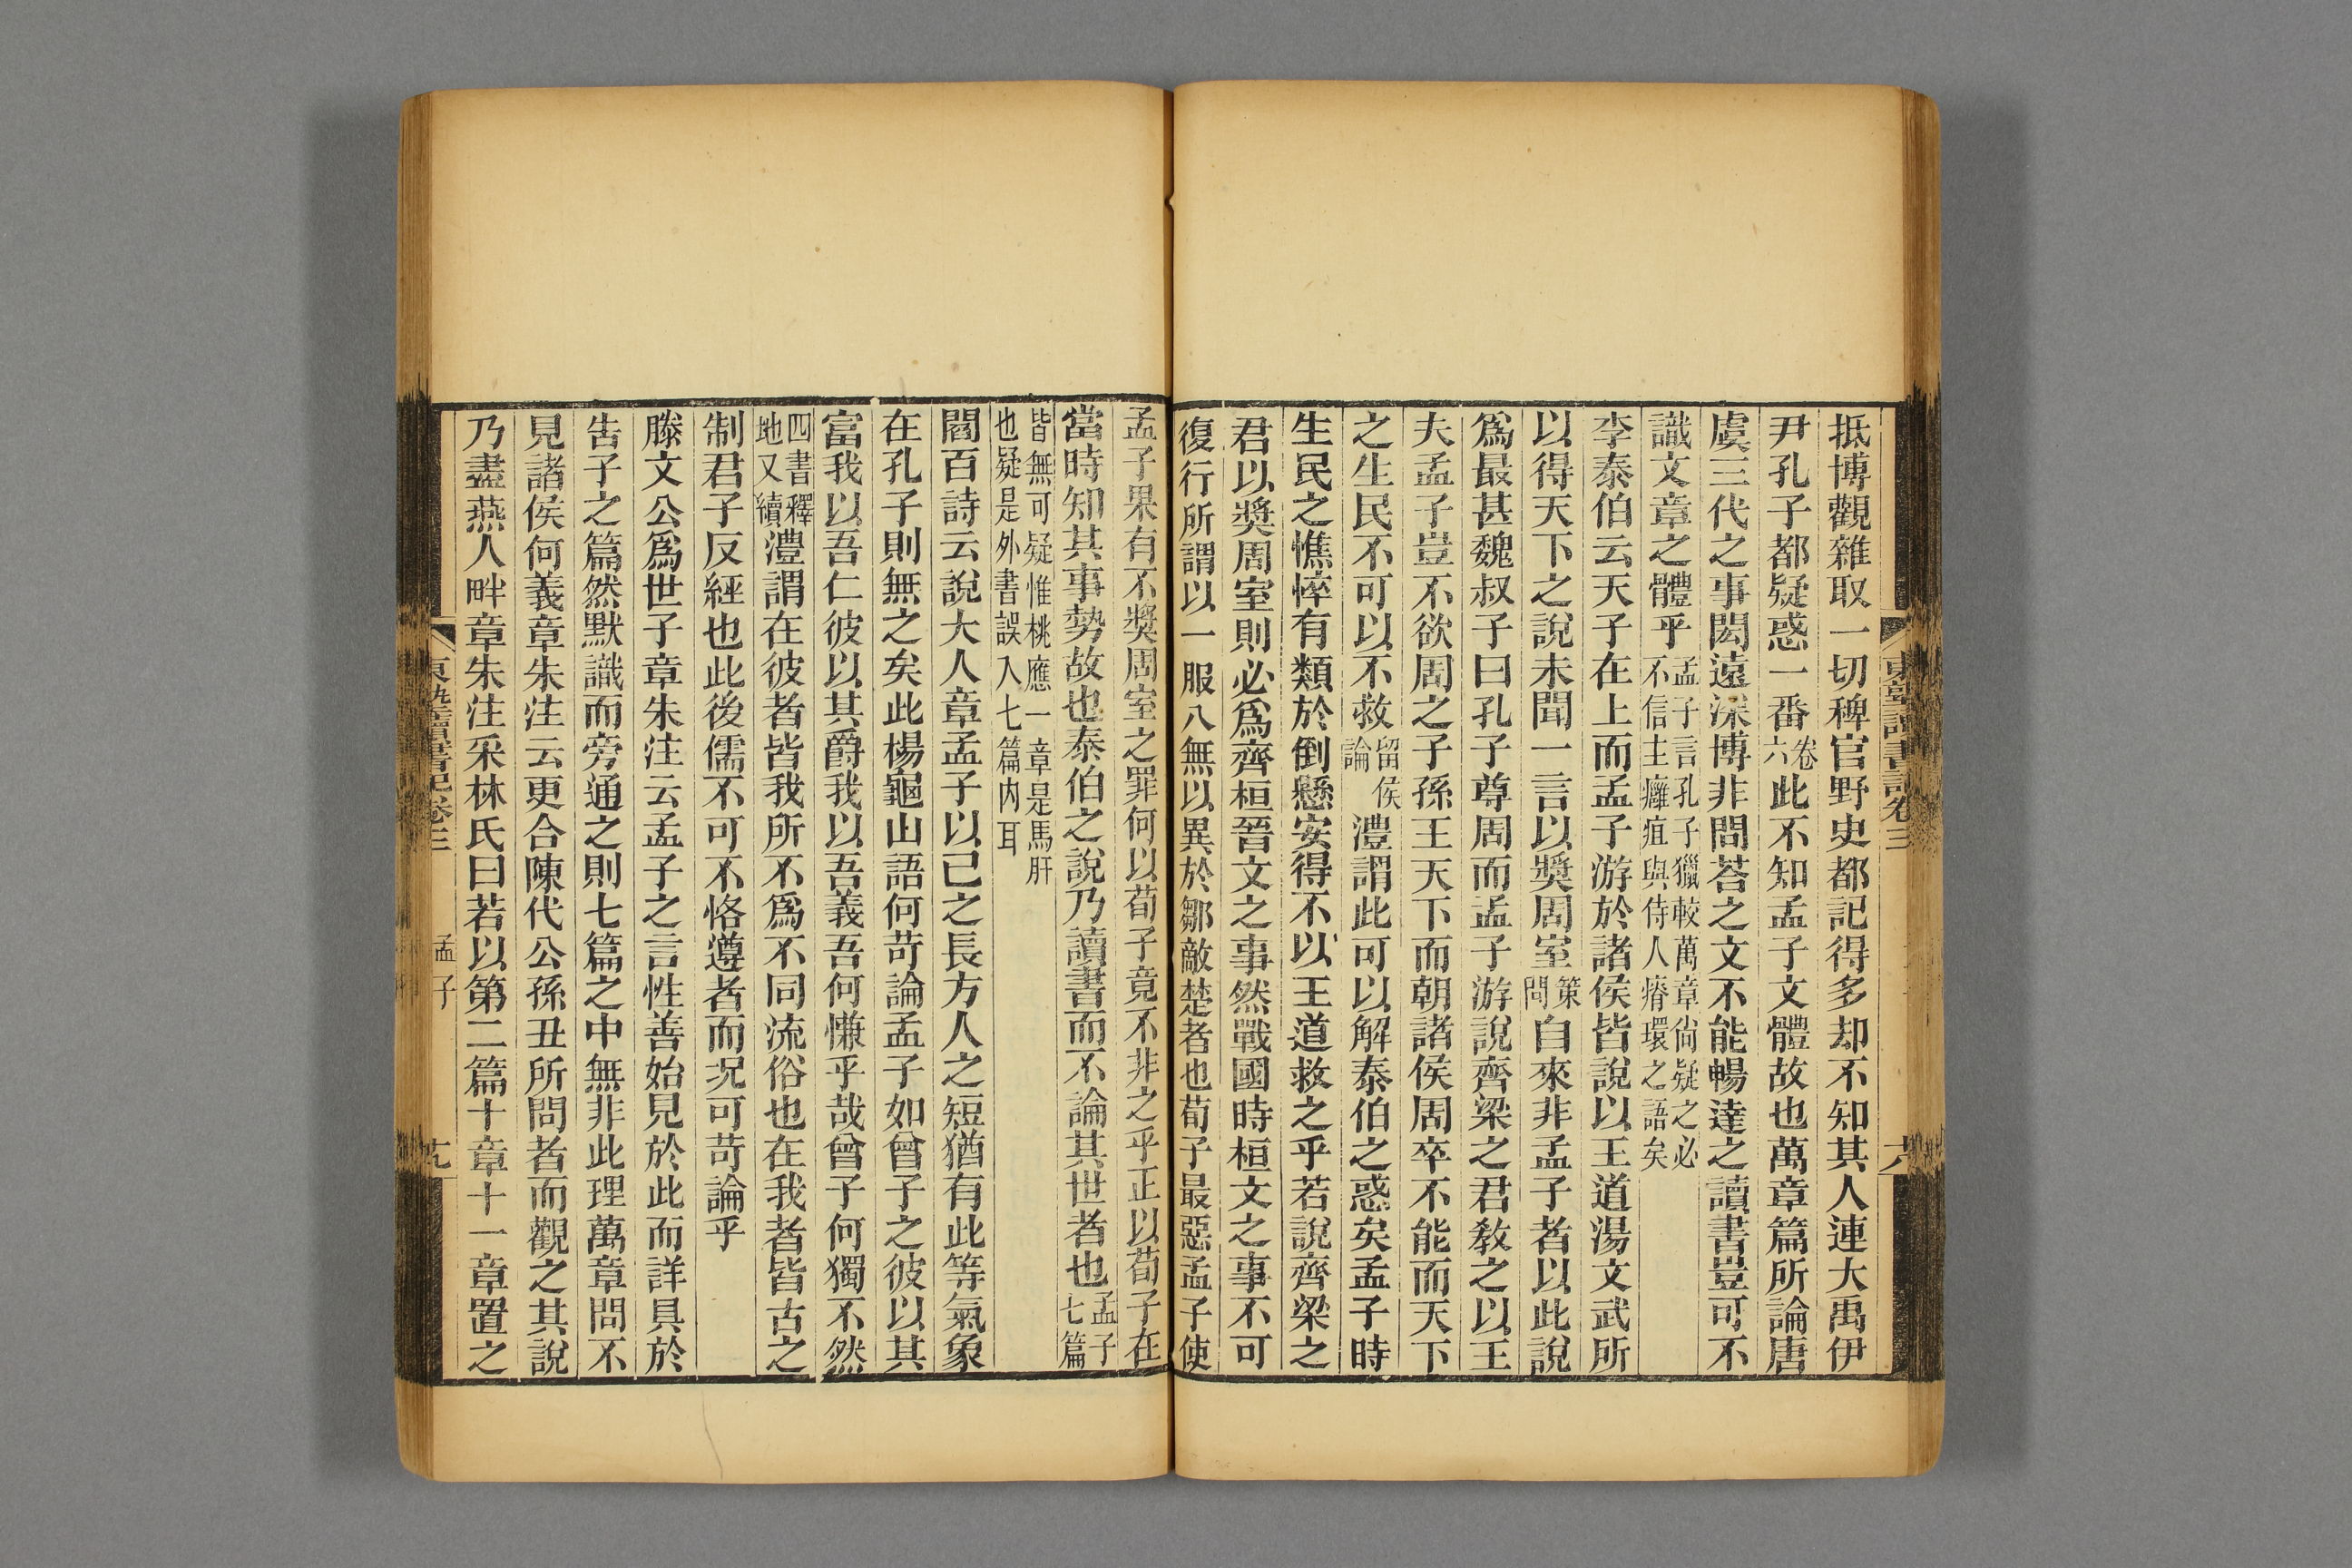 抵博觀雜取一切稗官野史都記得多却不知其人連大禹伊
尹孔子都疑惑一番卷六此不知孟子文體故也萬章篇所論唐
虞三代之事閎遠深博非問荅之文不能暢達之讀書豈可不
識文章之體乎孟子言孔子獵較萬章尚疑之必不信主癰疽與侍人瘠環之語矣
李泰伯云天子在上而孟子游於諸侯皆說以王道湯文武所
以得天下之說未聞一言以獎周室策問自來非孟子者以此說
爲最甚魏叔子曰孔子尊周而孟子游說齊梁之君教之以王
夫孟子豈不欲周之子孫王天下而朝諸侯周卒不能而天下
之生民不可以不救留侯論澧謂此可以解泰伯之惑矣孟子時
生民之憔悴有類於倒懸安得不以王道救之乎若說齊梁之
君以獎周室則必爲齊桓晉文之事然戰國時桓文之事不可
復行所謂以一服八無以異於鄒敵楚者也荀子最惡孟子使
東塾讀書記卷三
六
孟子果有不獎周室之罪何以荀子竟不非之乎正以荀子在
當時知其事勢故也泰伯之說乃讀書而不論其世者也孟子七篇
皆無可疑惟桃應一章是馬肝也疑是外書誤入七篇內耳
閻百詩云說大人章孟子以己之長方人之短猶有此等氣象
在孔子則無之矣此楊龜山語何苛論孟子如曾子之彼以其
富我以吾仁彼以其爵我以吾義吾何慊乎哉曾子何獨不然
四書釋地又續澧謂在彼者皆我所不爲不同流俗也在我者皆古之
制君子反經也此後儒不可不恪遵者而況可苛論乎
滕文公爲世子章朱注云孟子之言性善始見於此而詳具於
告子之篇然默識而旁通之則七篇之中無非此理萬章問不
見諸侯何義章朱注云更合陳代公孫丑所問者而觀之其說
乃盡燕人畔章朱注采林氏曰若以第二篇十章十一章置之
東塾讀書記卷三
孟子
九